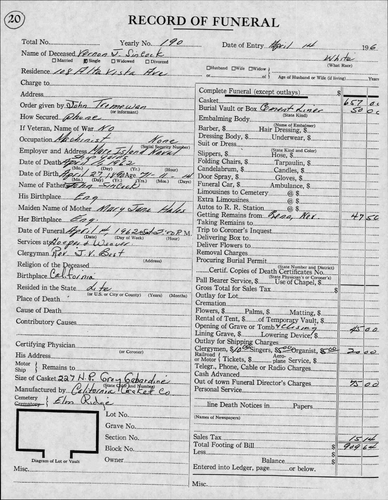 20
RECORD OF FUNERAL
Total No. Yearly No. 190 Date of Entry April 1st 196
Name of Deceased Vernon J. Sincock White
(What Race)
Married Single Widowed Divorced Husband Wife Widow of
Residence 108 Alta Vista Ave Age of Husband or Wife (if living) Years
Charge to
Address
Order given by John Tremewan
(or informant)
How Secured Phone
If Veteran, Name of War No
Occupation Machinist None
Social Security Number
Employer and Address Mare Island Naval
Date of Death April 1962
(Mo.) (Day) (Yr.)
Date of Birth April 27, 1890 Age 71-11-4
Name of Father John Sincock
His Birthplace Eng
Maiden Name of Mother Mary Jane Hales
Her Birthplace Eng.
Date of Funeral April 4, 1962 P.M.
Services at Hooper & Weaver
Clergyman Rev. J.V. Best
Religion of the Deceased
Birthplace California
Resided in the State life
(or U.S. or City or County) (Years) (Months)
Place of Death
Cause of Death
Contributory Causes
Certifying Physician
(or Coroner)
His Address
Motor
Ship Remains to
Size of Casket 22 N.P. Grey Gabardine
Manufactured by California Casket Co
Cemetery
Crematory Elm Ridge
Lot No.
Grave No.
Section No.
Block No.
Owner
Diagram of Lot or Vault
Misc.
Complete Funeral (except outlays) $
Casket 657 00
Burial Vault or Box Cement Liner 50 00
(State Kind)
Embalming Body
(Name of Embalmer)
Barber, $ Hair Dressing, $
Dressing Body, $ Underwear, $
Suit or Dress
(State Kind and Color)
Slippers, $ Hose, $
Folding Chairs, $ Tarpaulin, $
Candelabrum, $ Candles, $
Door Spray, $ Gloves, $
Funeral Car, $ Ambulance, $
Limousines to Cemetery @ $
Extra Limousines @ $
Autos to R. R. Station @ $
Getting Remains from Reno, Nev. 47 50
Taking Remains to
Trip to Coroner's Inquest
Delivering Box to
Deliver Flowers to
Removal Charges
Procuring Burial Permit
(State Number and District)
Certif. Copies of Death Certificates No.
(State Physician's or Coroner's)
Pall Bearer Service, $ Use of Chapel, $
Gross Total for Sales Tax $
Outlay for Lot
Cremation
Flowers, $ Palms, $ Matting, $
Rental of Tent, $ of Temporary Vault, $
Opening of Grave or Tomb + Closing 45 00
Lining Grave, $ Lowering Device, $
Outlay for Shipping Charges
Clergymen, $ Singers, $ Organist, $ 5.00 20 00
Railroad or Motor Tickets, $ Aero. Service, $
Telegr., Phone, Cable or Radio Charges
Cash Advanced
Out of town Funeral Director's Charges 75 00
Personal Services
line Death Notices in Papers
(Names of Newspapers)
Sales Tax 15 14
Total Footing of Bill $ 909 64
Less $
Balance $
Entered into Ledger, page or below.
Misc.